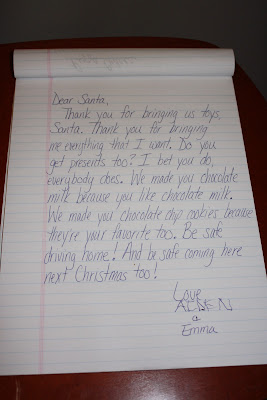 Dear Santa,
Thank you for bringing us toys,
Santa. Thank you for bringing
me everything that I want. Do you
get presents too? I bet you do,
everybody does. We made you chocolate
milk because you like chocolate milk.
We made you chocolate chip cookies, because
they're your favorite too. Be safe
driving home! And be safe coming here
next Christmas too!
Love
ALDEN
&
Emma